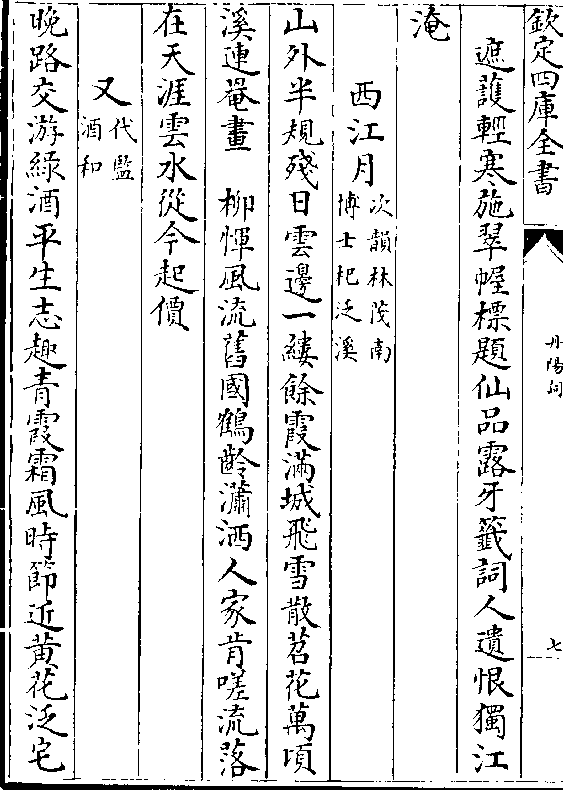 欽定四庫全書
丹陽詞
七
遮護輕寒施翠幄標題仙品露牙籤詞人遺恨獨江
淹
西江月次韻林茂南博士杞泛溪
山外半規殘日雲邊一縷餘霞滿城飛雪散苕花萬頃
溪連罨畫　柳惲風流舊國鶴齡瀟洒人家肯嗟流落
在天涯雲水從今起價
又代監酒和
晚路交游綠酒平生志趣青霞霜風時節近黃花泛宅